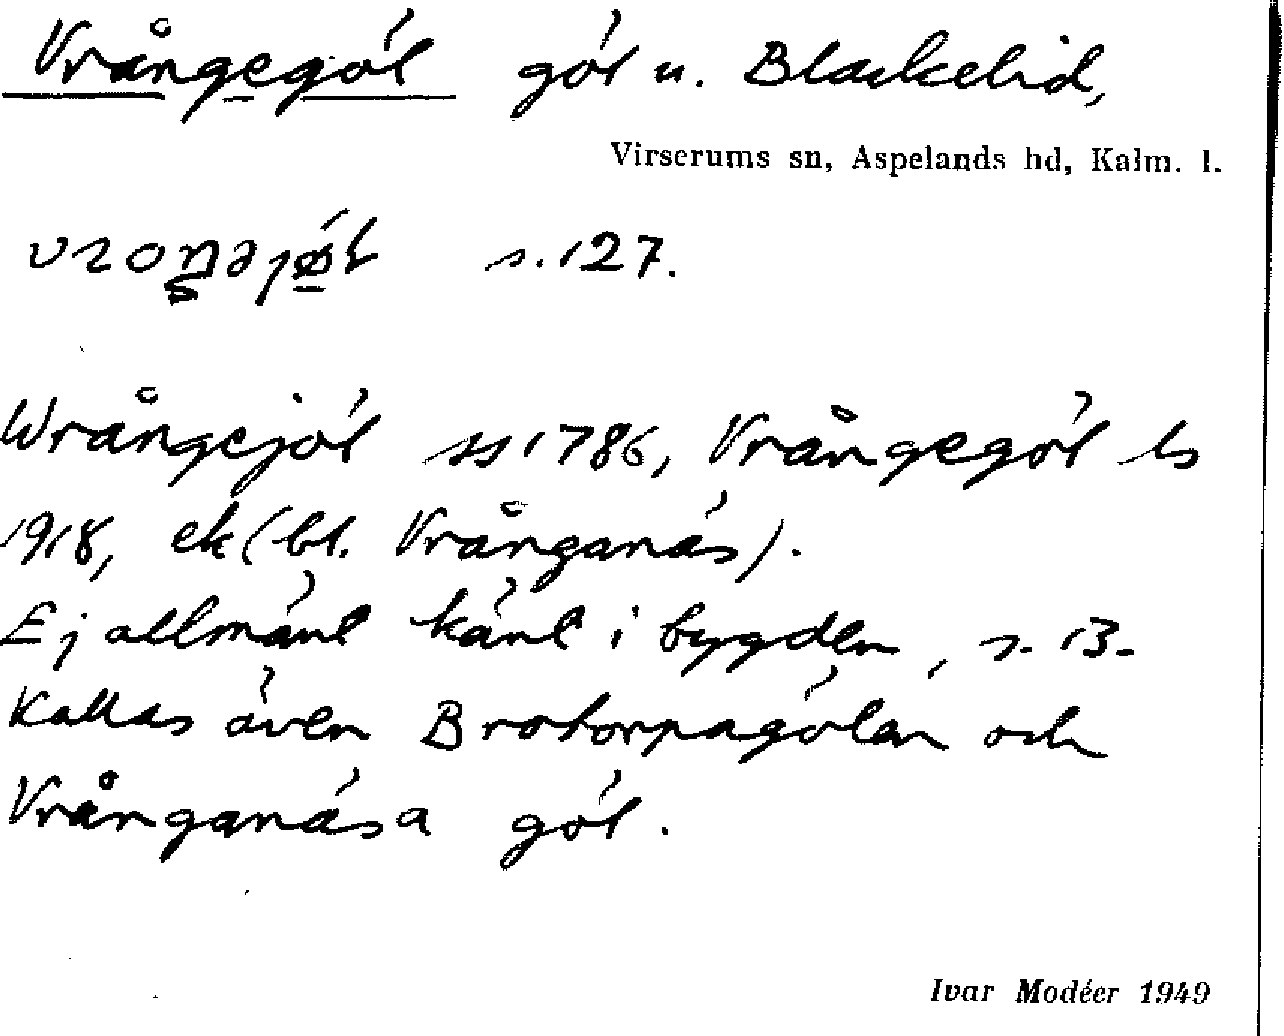 Vrångegöl göl u. Blackelid,
Virserums sn, Aspelands hd, Kalm. l.
s. 127.
Wrångejöl ss 1786, Vrångegöl ls
1918, ek (bl. Vrånganäs).
Ej allmänt känt i bygden, s. 13.
Kallas även Brotorpagölen och
Vrånganäsa göl.
Ivar Modéer 1949